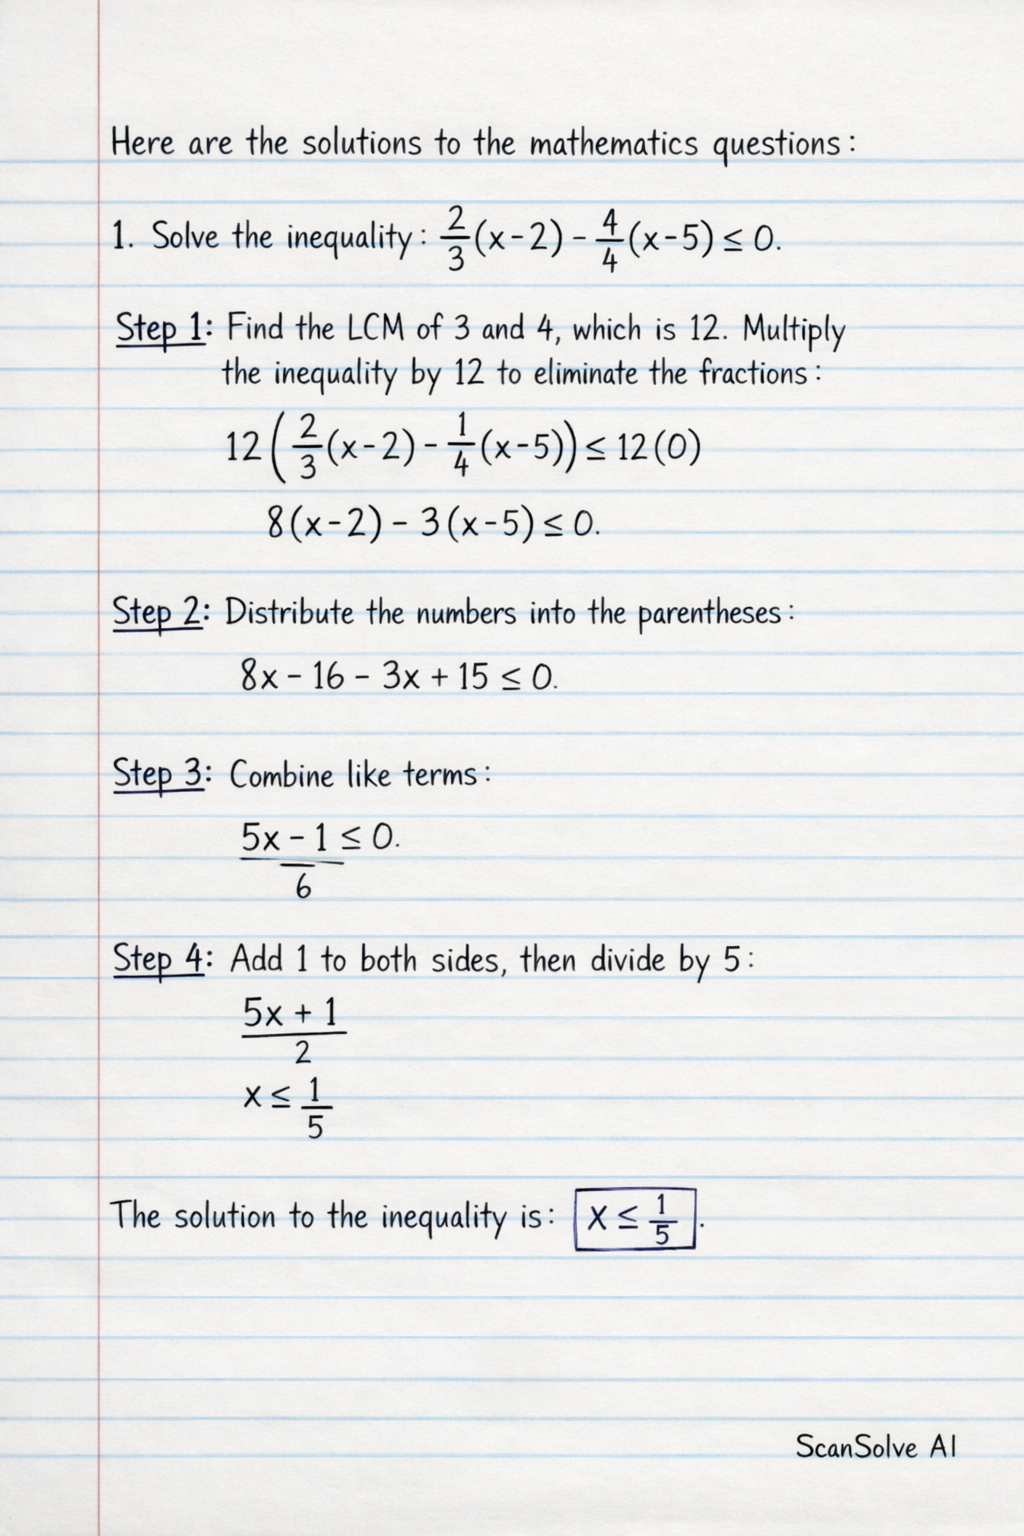 Here are the solutions to the mathematics questions:
1. Solve the inequality: 2/3(x-2) - 4/4(x-5) ≤ 0.
Step 1: Find the LCM of 3 and 4, which is 12. Multiply
the inequality by 12 to eliminate the fractions:
12(2/3(x-2) - 1/4(x-5)) ≤ 12(0)
8(x-2) - 3(x-5) ≤ 0.
Step 2: Distribute the numbers into the parentheses:
8x - 16 - 3x + 15 ≤ 0.
Step 3: Combine like terms:
5x - 1 ≤ 0.
6
Step 4: Add 1 to both sides, then divide by 5:
5x + 1
2
x ≤ 1/5
The solution to the inequality is: x ≤ 1/5.
ScanSolve AI